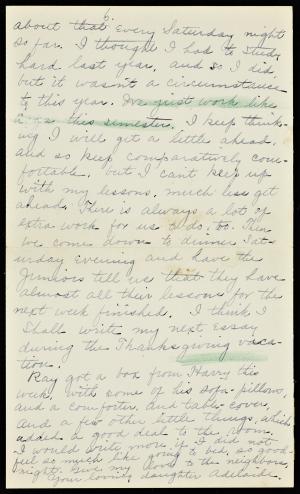 about that every Saturday night
so far. I thought I had to study
hard last year, and so I did,
but it wasn't a circumstance
to this year. I've just work like
this semester. I keep think-
ing I will get a little ahead,
and so keep comparatively com-
fortable, but I can't keep up
with my lessons, much less get
ahead. There is always a lot of
extra work for us to do, to. Then
we come down to dinner Sat-
urday evening and have the
Juniors tell us that they have
almost all their lessons for the
next week finished. I think I
shall write my next essay
during the Thanksgiving vaca-
tion.
Ray got a box from Harry this
week, with some of his sofa-pillows,
and a comforter, and table-cover,
and a few other little things, which
added a good deal to the room.
I would write more if I did not
feel so much like going to bed, so good-
night. Give my love to the neighbors,
Your loving daughter Adelaide.